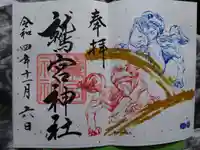 奉拝
鷲宮神社
令和四年十一月六日